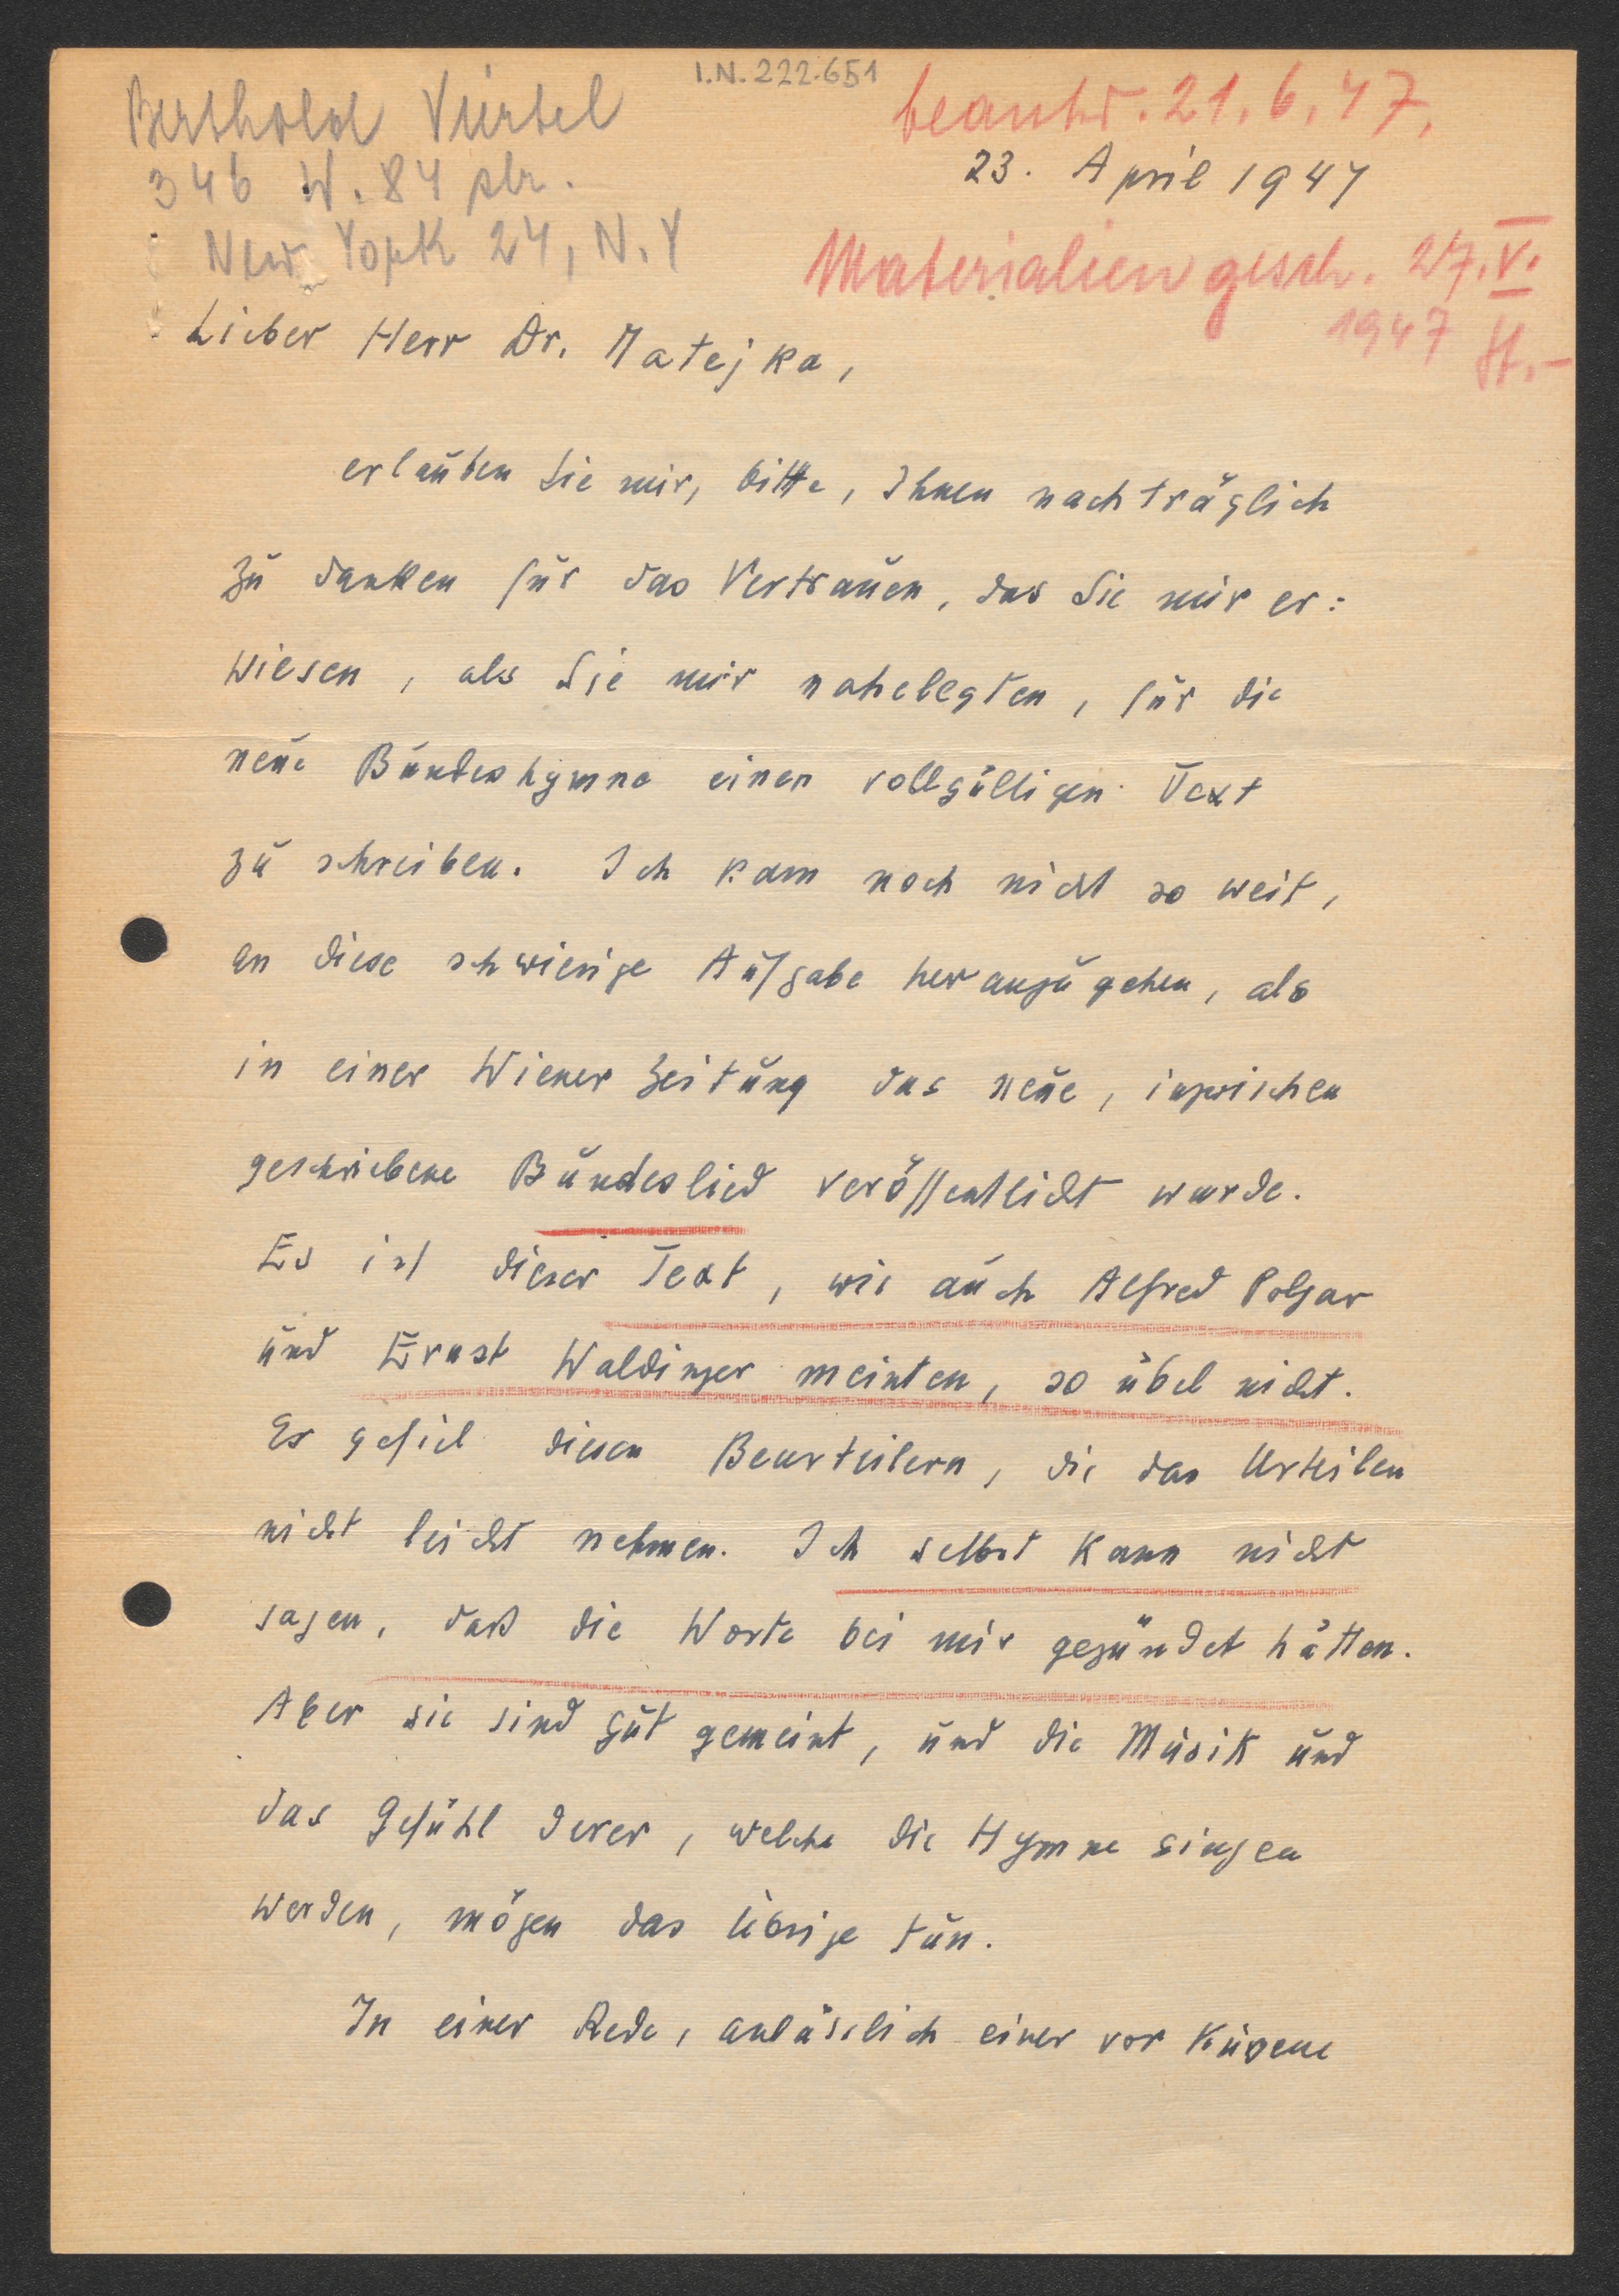 I.N. 222.651
Berthold Viertel
346 W. 84 str.
New York 24, N.Y
beantw. 21. 6. 47.
23. April 1947
Materialien gesch. 27. V.
1947
Lieber Herr Dr. Matejka,
erlauben Sie mir, bitte, Ihnen nachträglich
zu danken für das Vertrauen, das Sie mir er:
wiesen, als Sie mir nahelegten, für die
neue Bundeshymne einen vollgültigen Text
zu schreiben. Ich kam noch nicht so weit,
an diese schwierige Aufgabe heranzugehen, als
in einer Wiener Zeitung das neue, inzwischen
geschriebene Bundeslied veröffentlicht wurde.
Es ist dieser Text, wie auch Alfred Polgar
und Ernst Waldinger meinten, so übel nicht.
Er gefiel diesen Beurteilern, die das Urteilen
nicht leicht nehmen. Ich selbst kann nicht
sagen, daß die Worte bei mir gezündet hätten.
Aber sie sind gut gemeint, und die Musik und
das Gefühl derer, welche die Hymne singen
werden, mögen das Übrige tun.
In einer Rede, anlässlich einer vor Kurzem